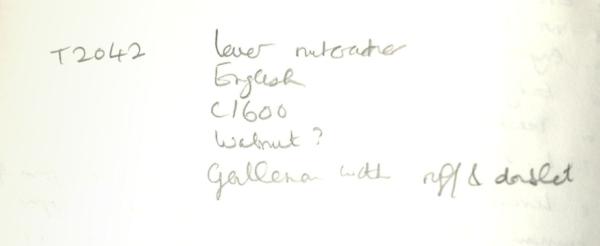 T2042 lever nutcracker
English
C1600
Walnut?
Gentleman with ruff & doublet